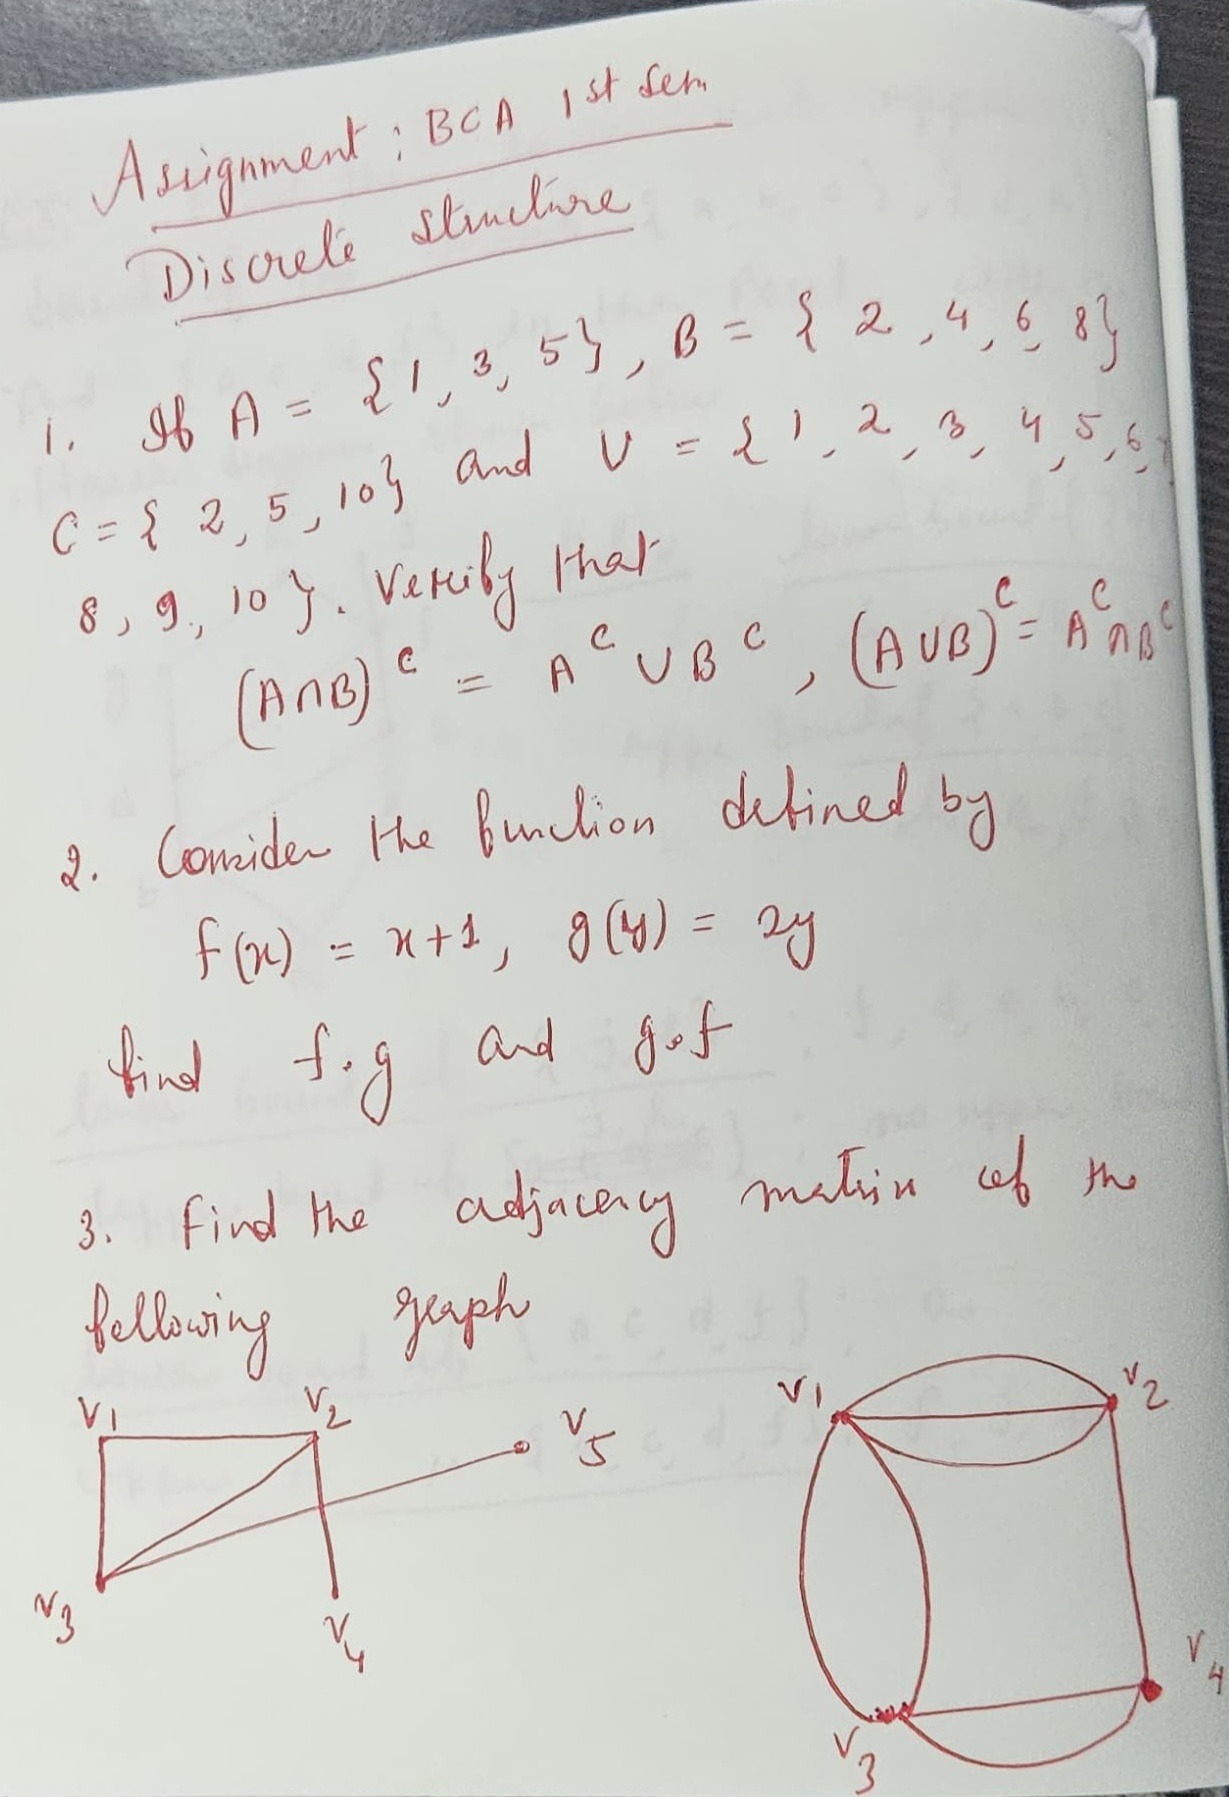 Assignment : BCA 1st Sem
Discrete structure
1. If A = {1, 3, 5}, B = { 2, 4, 6, 8}
C = { 2, 5, 10} and U = { 1, 2, 3, 4, 5, 6, 7
8, 9, 10 }. Verify that
(A∩B)ᶜ = Aᶜ ∪ Bᶜ, (A∪B)ᶜ = Aᶜ∩Bᶜ
2. Consider the function defined by
f(x) = x+1, g(y) = 2y
find f∘g and g∘f
3. Find the adjacency matrix of the
following graph
V1 V2 V5 V3 V4
V1 V2 V3 V4